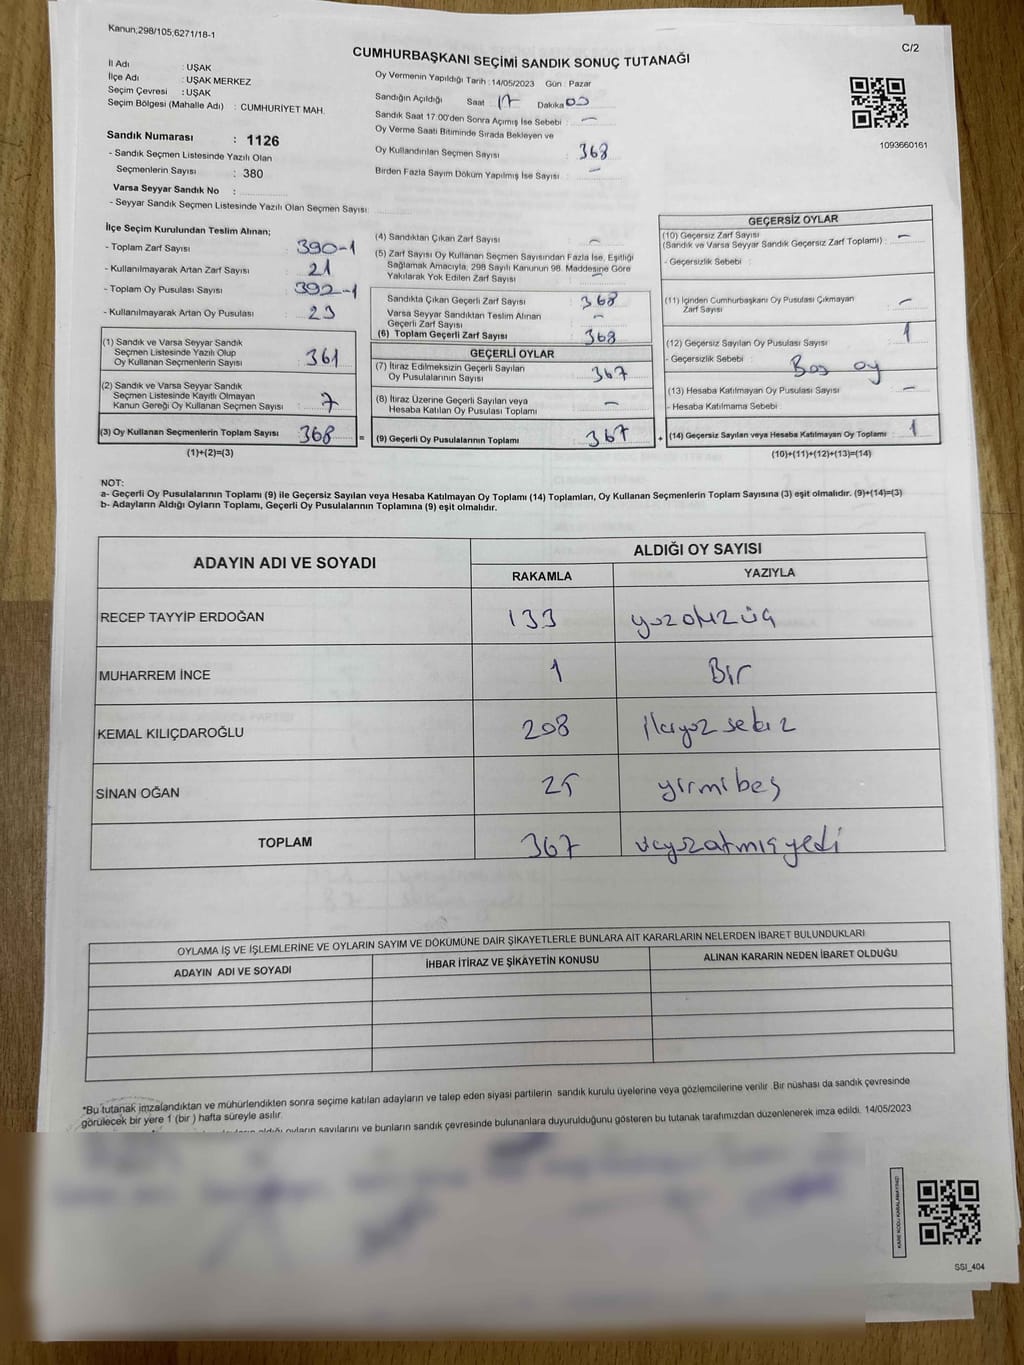 Kanun;298/105;6271/18-1
C/2
CUMHURBAŞKANI SEÇİMİ SANDIK SONUÇ TUTANAĞI
İl Adı : UŞAK
İlçe Adı : UŞAK MERKEZ
Seçim Çevresi : UŞAK
Seçim Bölgesi (Mahalle Adı) : CUMHURİYET MAH.
Sandık Numarası : 1126
- Sandık Seçmen Listesinde Yazılı Olan
Seçmenlerin Sayısı : 380
Varsa Seyyar Sandık No :
- Seyyar Sandık Seçmen Listesinde Yazılı Olan Seçmen Sayısı
Oy Vermenin Yapıldığı Tarih : 14/05/2023 Gün : Pazar
Sandığın Açıldığı Saat 17 Dakika 00
Sandık Saat 17.00'den Sonra Açımış İse Sebebi : -
Oy Verme Saati Bitiminde Sırada Bekleyen ve
Oy Kullandırılan Seçmen Sayısı : 368
Birden Fazla Sayım Döküm Yapılmış İse Sayısı -
1093660161
İlçe Seçim Kurulundan Teslim Alınan;
- Toplam Zarf Sayısı : 390-1
- Kullanılmayarak Artan Zarf Sayısı : 21
- Toplam Oy Pusulası Sayısı : 392-1
- Kullanılmayarak Artan Oy Pusulası : 23
(1) Sandık ve Varsa Seyyar Sandık
Seçmen Listesinde Yazılı Olup
Oy Kullanan Seçmenlerin Sayısı : 361
(2) Sandık ve Varsa Seyyar Sandık
Seçmen Listesinde Kayıtlı Olmayan
Kanun Gereği Oy Kullanan Seçmen Sayısı : 7
(3) Oy Kullanan Seçmenlerin Toplam Sayısı 368 =
(1)+(2)=(3)
(4) Sandıktan Çıkan Zarf Sayısı : -
(5) Zarf Sayısı Oy Kullanan Seçmen Sayısından Fazla İse, Eşitliği
Sağlamak Amacıyla, 298 Sayılı Kanunun 98. Maddesine Göre
Yakılarak Yok Edilen Zarf Sayısı : -
Sandıkta Çıkan Geçerli Zarf Sayısı : 368
Varsa Seyyar Sandıktan Teslim Alınan
Geçerli Zarf Sayısı : -
(6) Toplam Geçerli Zarf Sayısı : 368
GEÇERLİ OYLAR
(7) İtiraz Edilmeksizin Geçerli Sayılan
Oy Pusulalarının Sayısı : 367
(8) İtiraz Üzerine Geçerli Sayılan veya
Hesaba Katılan Oy Pusulası Toplamı : -
(9) Geçerli Oy Pusulalarının Toplamı : 367 +
GEÇERSİZ OYLAR
(10) Geçersiz Zarf Sayısı
(Sandık ve Varsa Seyyar Sandık Geçersiz Zarf Toplamı) : -
- Geçersizlik Sebebi :
(11) İçinden Cumhurbaşkanı Oy Pusulası Çıkmayan
Zarf Sayısı : -
(12) Geçersiz Sayılan Oy Pusulası Sayısı : 1
- Geçersizlik Sebebi : Boş oy
(13) Hesaba Katılmayan Oy Pusulası Sayısı : -
- Hesaba Katılmama Sebebi :
(14) Geçersiz Sayılan veya Hesaba Katılmayan Oy Toplamı : 1
(10)+(11)+(12)+(13)=(14)
NOT:
a- Geçerli Oy Pusulalarının Toplamı (9) ile Geçersiz Sayılan veya Hesaba Katılmayan Oy Toplamı (14) Toplamları, Oy Kullanan Seçmenlerin Toplam Sayısına (3) eşit olmalıdır. (9)+(14)=(3)
b- Adayların Aldığı Oyların Toplamı, Geçerli Oy Pusulalarının Toplamına (9) eşit olmalıdır.
ADAYIN ADI VE SOYADI ALDIĞI OY SAYISI
RAKAMLA YAZIYLA
RECEP TAYYİP ERDOĞAN 133 yüzotuzüç
MUHARREM İNCE 1 Bir
KEMAL KILIÇDAROĞLU 208 ikiyüzsekiz
SİNAN OĞAN 25 yirmibeş
TOPLAM 367 üçyüzatmışyedi
OYLAMA İŞ VE İŞLEMLERİNE VE OYLARIN SAYIM VE DÖKÜMÜNE DAİR ŞİKAYETLERLE BUNLARA AİT KARARLARIN NELERDEN İBARET BULUNDUKLARI
ADAYIN ADI VE SOYADI İHBAR İTİRAZ VE ŞİKAYETİN KONUSU ALINAN KARARIN NEDEN İBARET OLDUĞU
*Bu tutanak imzalandıktan ve mühürlendikten sonra seçime katılan adayların ve talep eden siyasi partilerin sandık kurulu üyelerine veya gözlemcilerine verilir. Bir nüshası da sandık çevresinde
görülecek bir yere 1 (bir ) hafta süreyle asılır.
aldığı oyların sayılarını ve bunların sandık çevresinde bulunanlara duyurulduğunu gösteren bu tutanak tarafımızdan düzenlenerek imza edildi. 14/05/2023
KARE KODU KARALAMAYINIZ!
SSİ_404